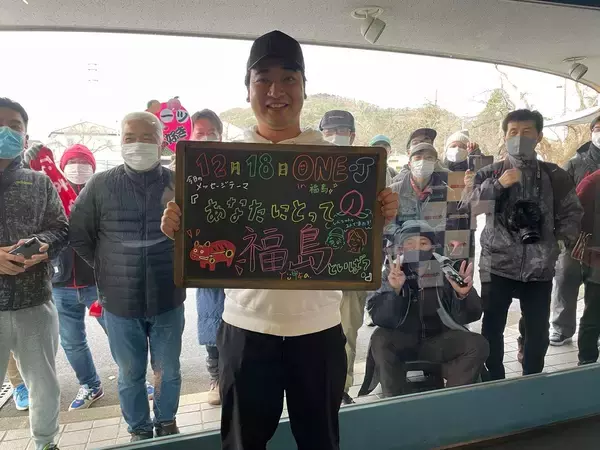 12月18日 ONE-J
今日の
メッセージテーマ
in 福島
『あなたにとって
福島
といえば?』